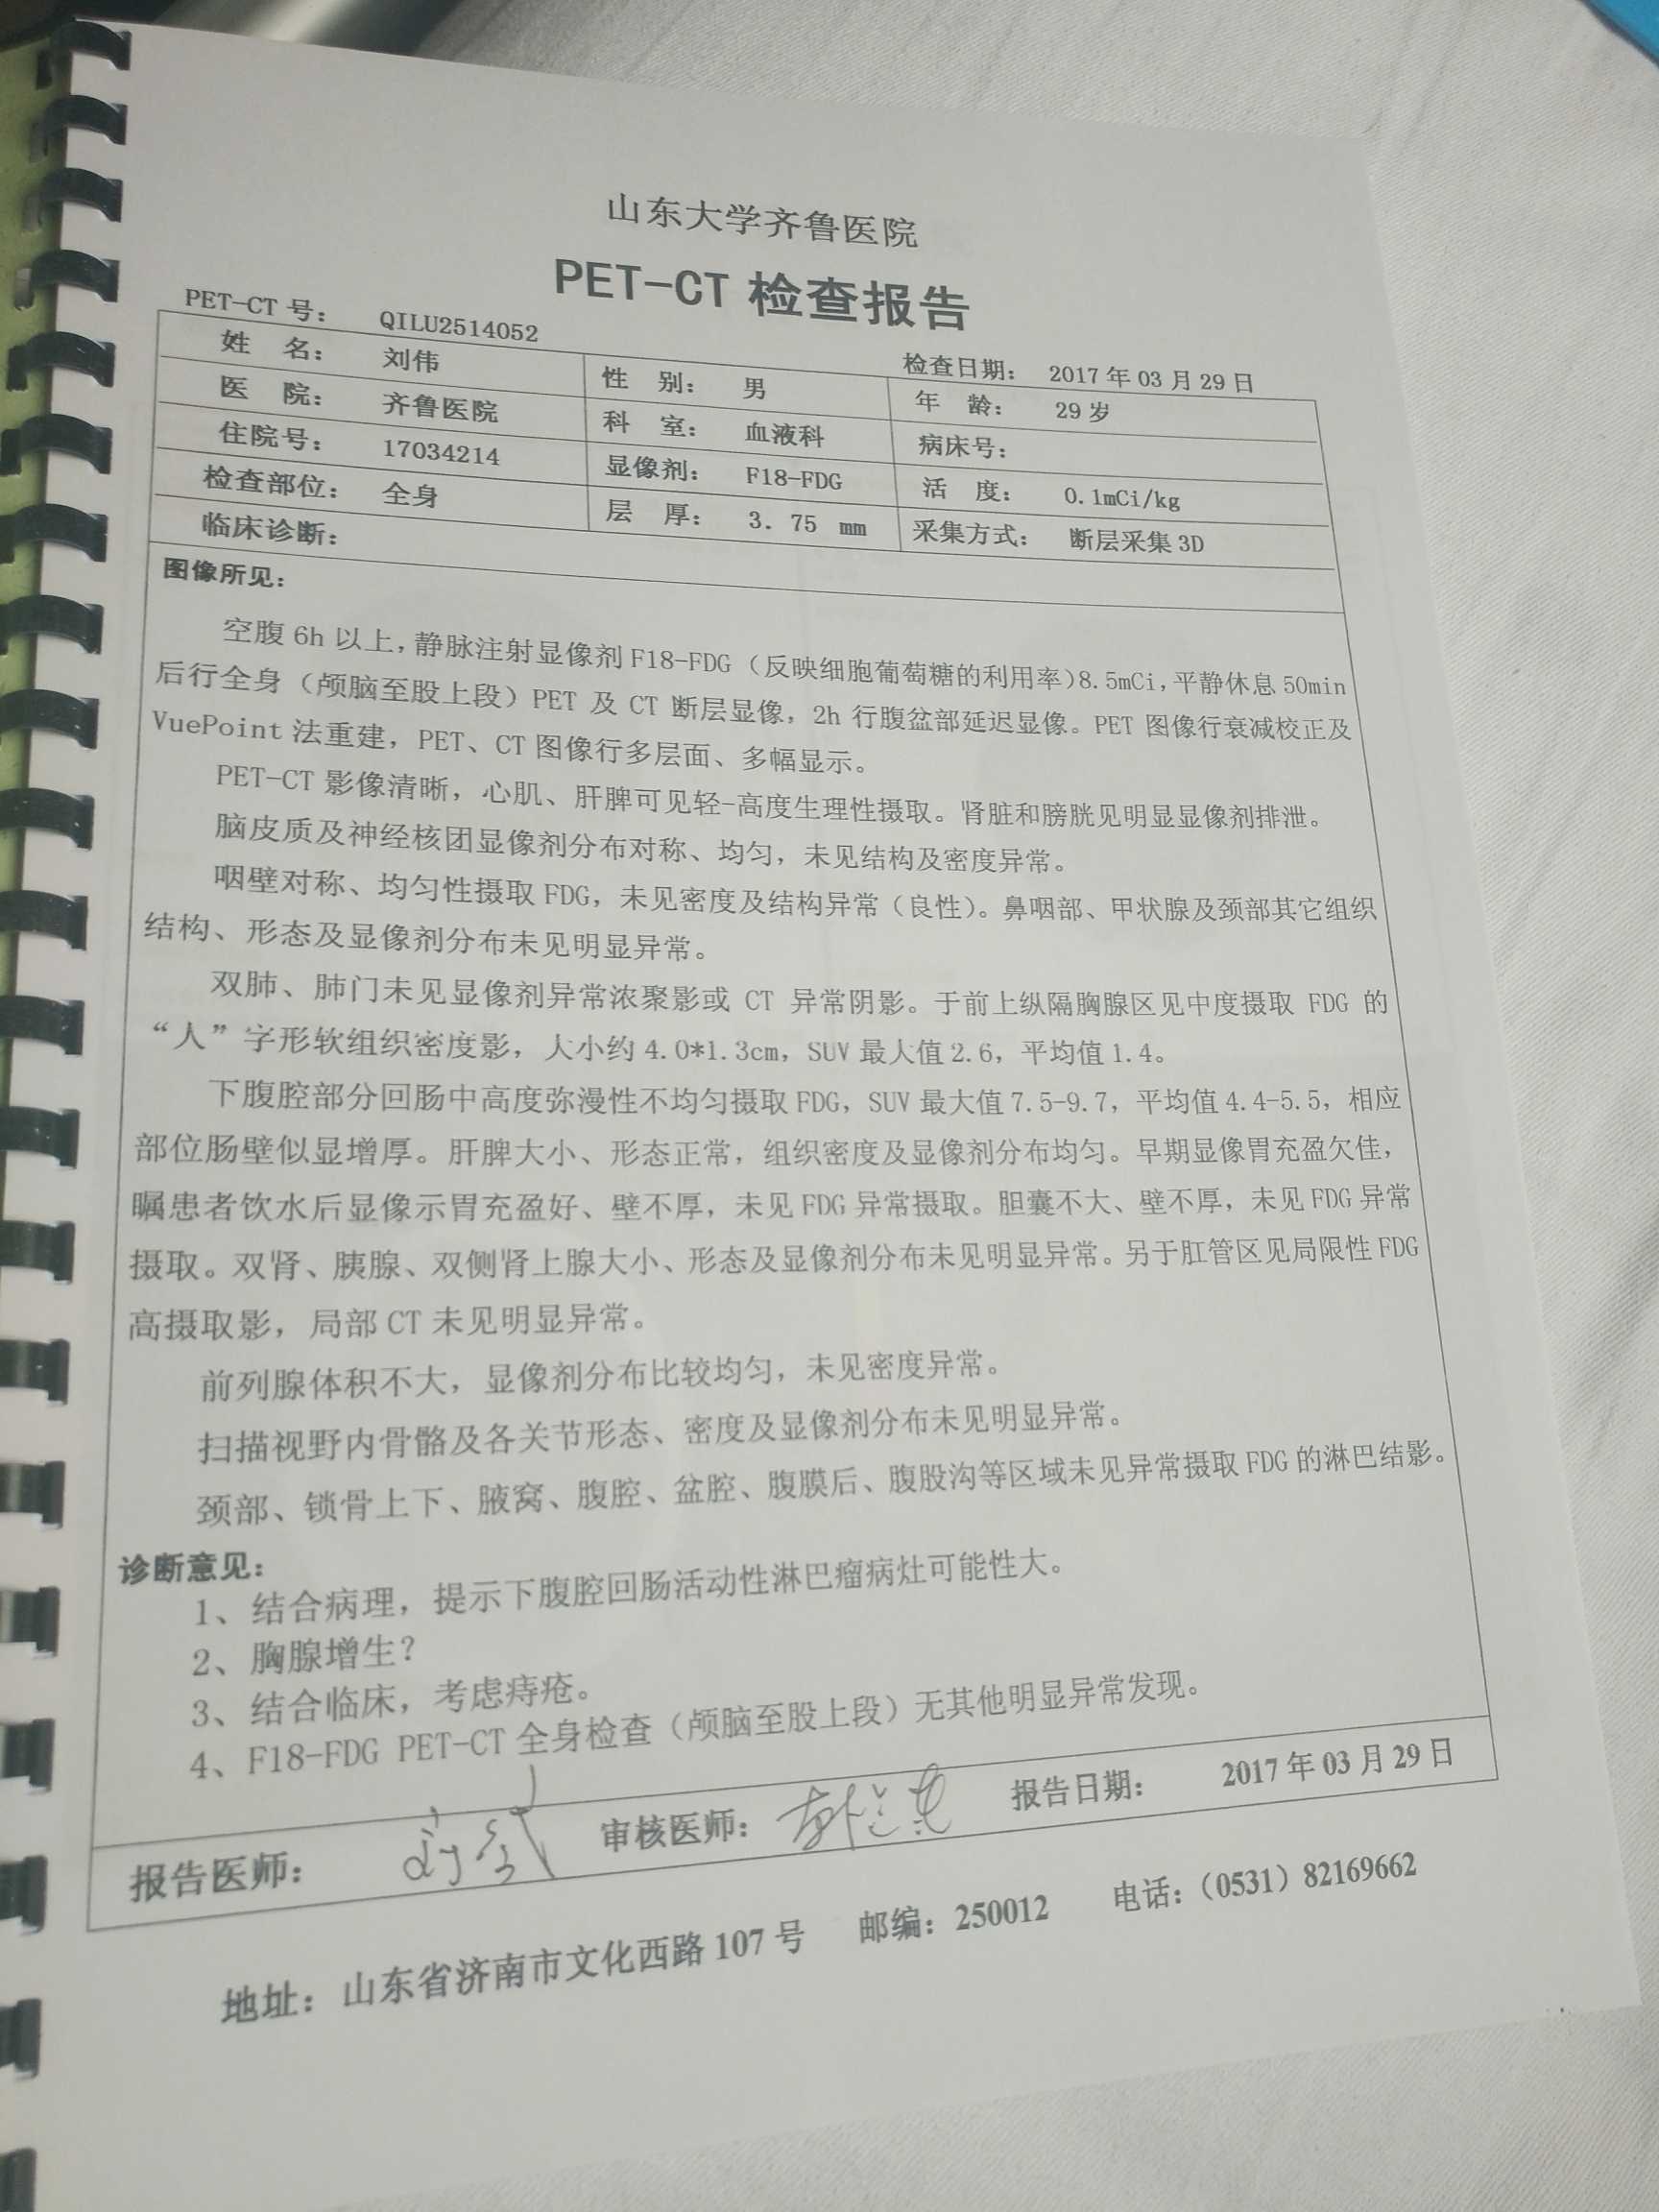 山东大学齐鲁医院
PET-CT 检查报告
PET-CT 号： QILU2514052 检查日期： 2017 年 03 月 29 日
姓 名： 刘伟 性 别： 男 年 龄： 29 岁
医 院： 齐鲁医院 科 室： 血液科 病床号：
住院号： 17034214 显像剂： F18-FDG 活 度： 0.1mCi/kg
检查部位： 全身 层 厚： 3. 75 mm 采集方式： 断层采集 3D
临床诊断：
图像所见：
空腹 6h 以上，静脉注射显像剂 F18-FDG（反映细胞葡萄糖的利用率)8.5mCi，平静休息 50min
后行全身（颅脑至股上段）PET 及 CT 断层显像，2h 行腹盆部延迟显像。PET 图像行衰减校正及
VuePoint 法重建，PET、CT 图像行多层面、多幅显示。
PET-CT 影像清晰，心肌、肝脾可见轻-高度生理性摄取。肾脏和膀胱见明显显像剂排泄。
脑皮质及神经核团显像剂分布对称、均匀，未见结构及密度异常。
咽壁对称、均匀性摄取 FDG，未见密度及结构异常（良性）。鼻咽部、甲状腺及颈部其它组织
结构、形态及显像剂分布未见明显异常。
双肺、肺门未见显像剂异常浓聚影或 CT 异常阴影。于前上纵隔胸腺区见中度摄取 FDG 的
“人”字形软组织密度影，大小约 4.0*1.3cm，SUV 最大值 2.6，平均值 1.4。
下腹腔部分回肠中高度弥漫性不均匀摄取 FDG，SUV 最大值 7.5-9.7，平均值 4.4-5.5，相应
部位肠壁似显增厚。肝脾大小、形态正常，组织密度及显像剂分布均匀。早期显像胃充盈欠佳，
瞩患者饮水后显像示胃充盈好、壁不厚，未见 FDG 异常摄取。胆囊不大、壁不厚，未见 FDG 异常
摄取。双肾、胰腺、双侧肾上腺大小、形态及显像剂分布未见明显异常。另于肛管区见局限性 FDG
高摄取影，局部 CT 未见明显异常。
前列腺体积不大，显像剂分布比较均匀，未见密度异常。
扫描视野内骨骼及各关节形态、密度及显像剂分布未见明显异常。
颈部、锁骨上下、腋窝、腹腔、盆腔、腹膜后、腹股沟等区域未见异常摄取 FDG 的淋巴结影。
诊断意见：
1、结合病理，提示下腹腔回肠活动性淋巴瘤病灶可能性大。
2、胸腺增生？
3、结合临床，考虑痔疮。
4、F18-FDG PET-CT 全身检查（颅脑至股上段）无其他明显异常发现。
报告医师： 审核医师： 报告日期： 2017 年 03 月 29 日
地址：山东省济南市文化西路 107 号 邮编：250012 电话：（0531）82169662